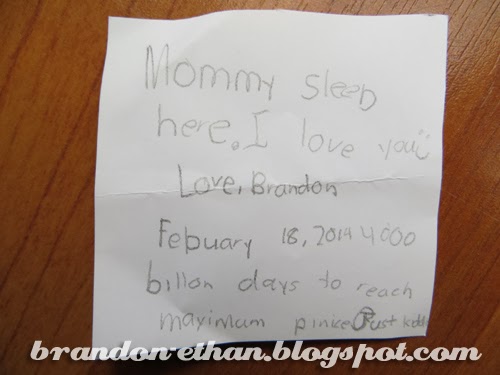 Mommy sleep
here. I love you
Love, Brandon
Febuary 18, 2014 4000
billon days to reach
maximum
brandon-ethan.blogspot.com